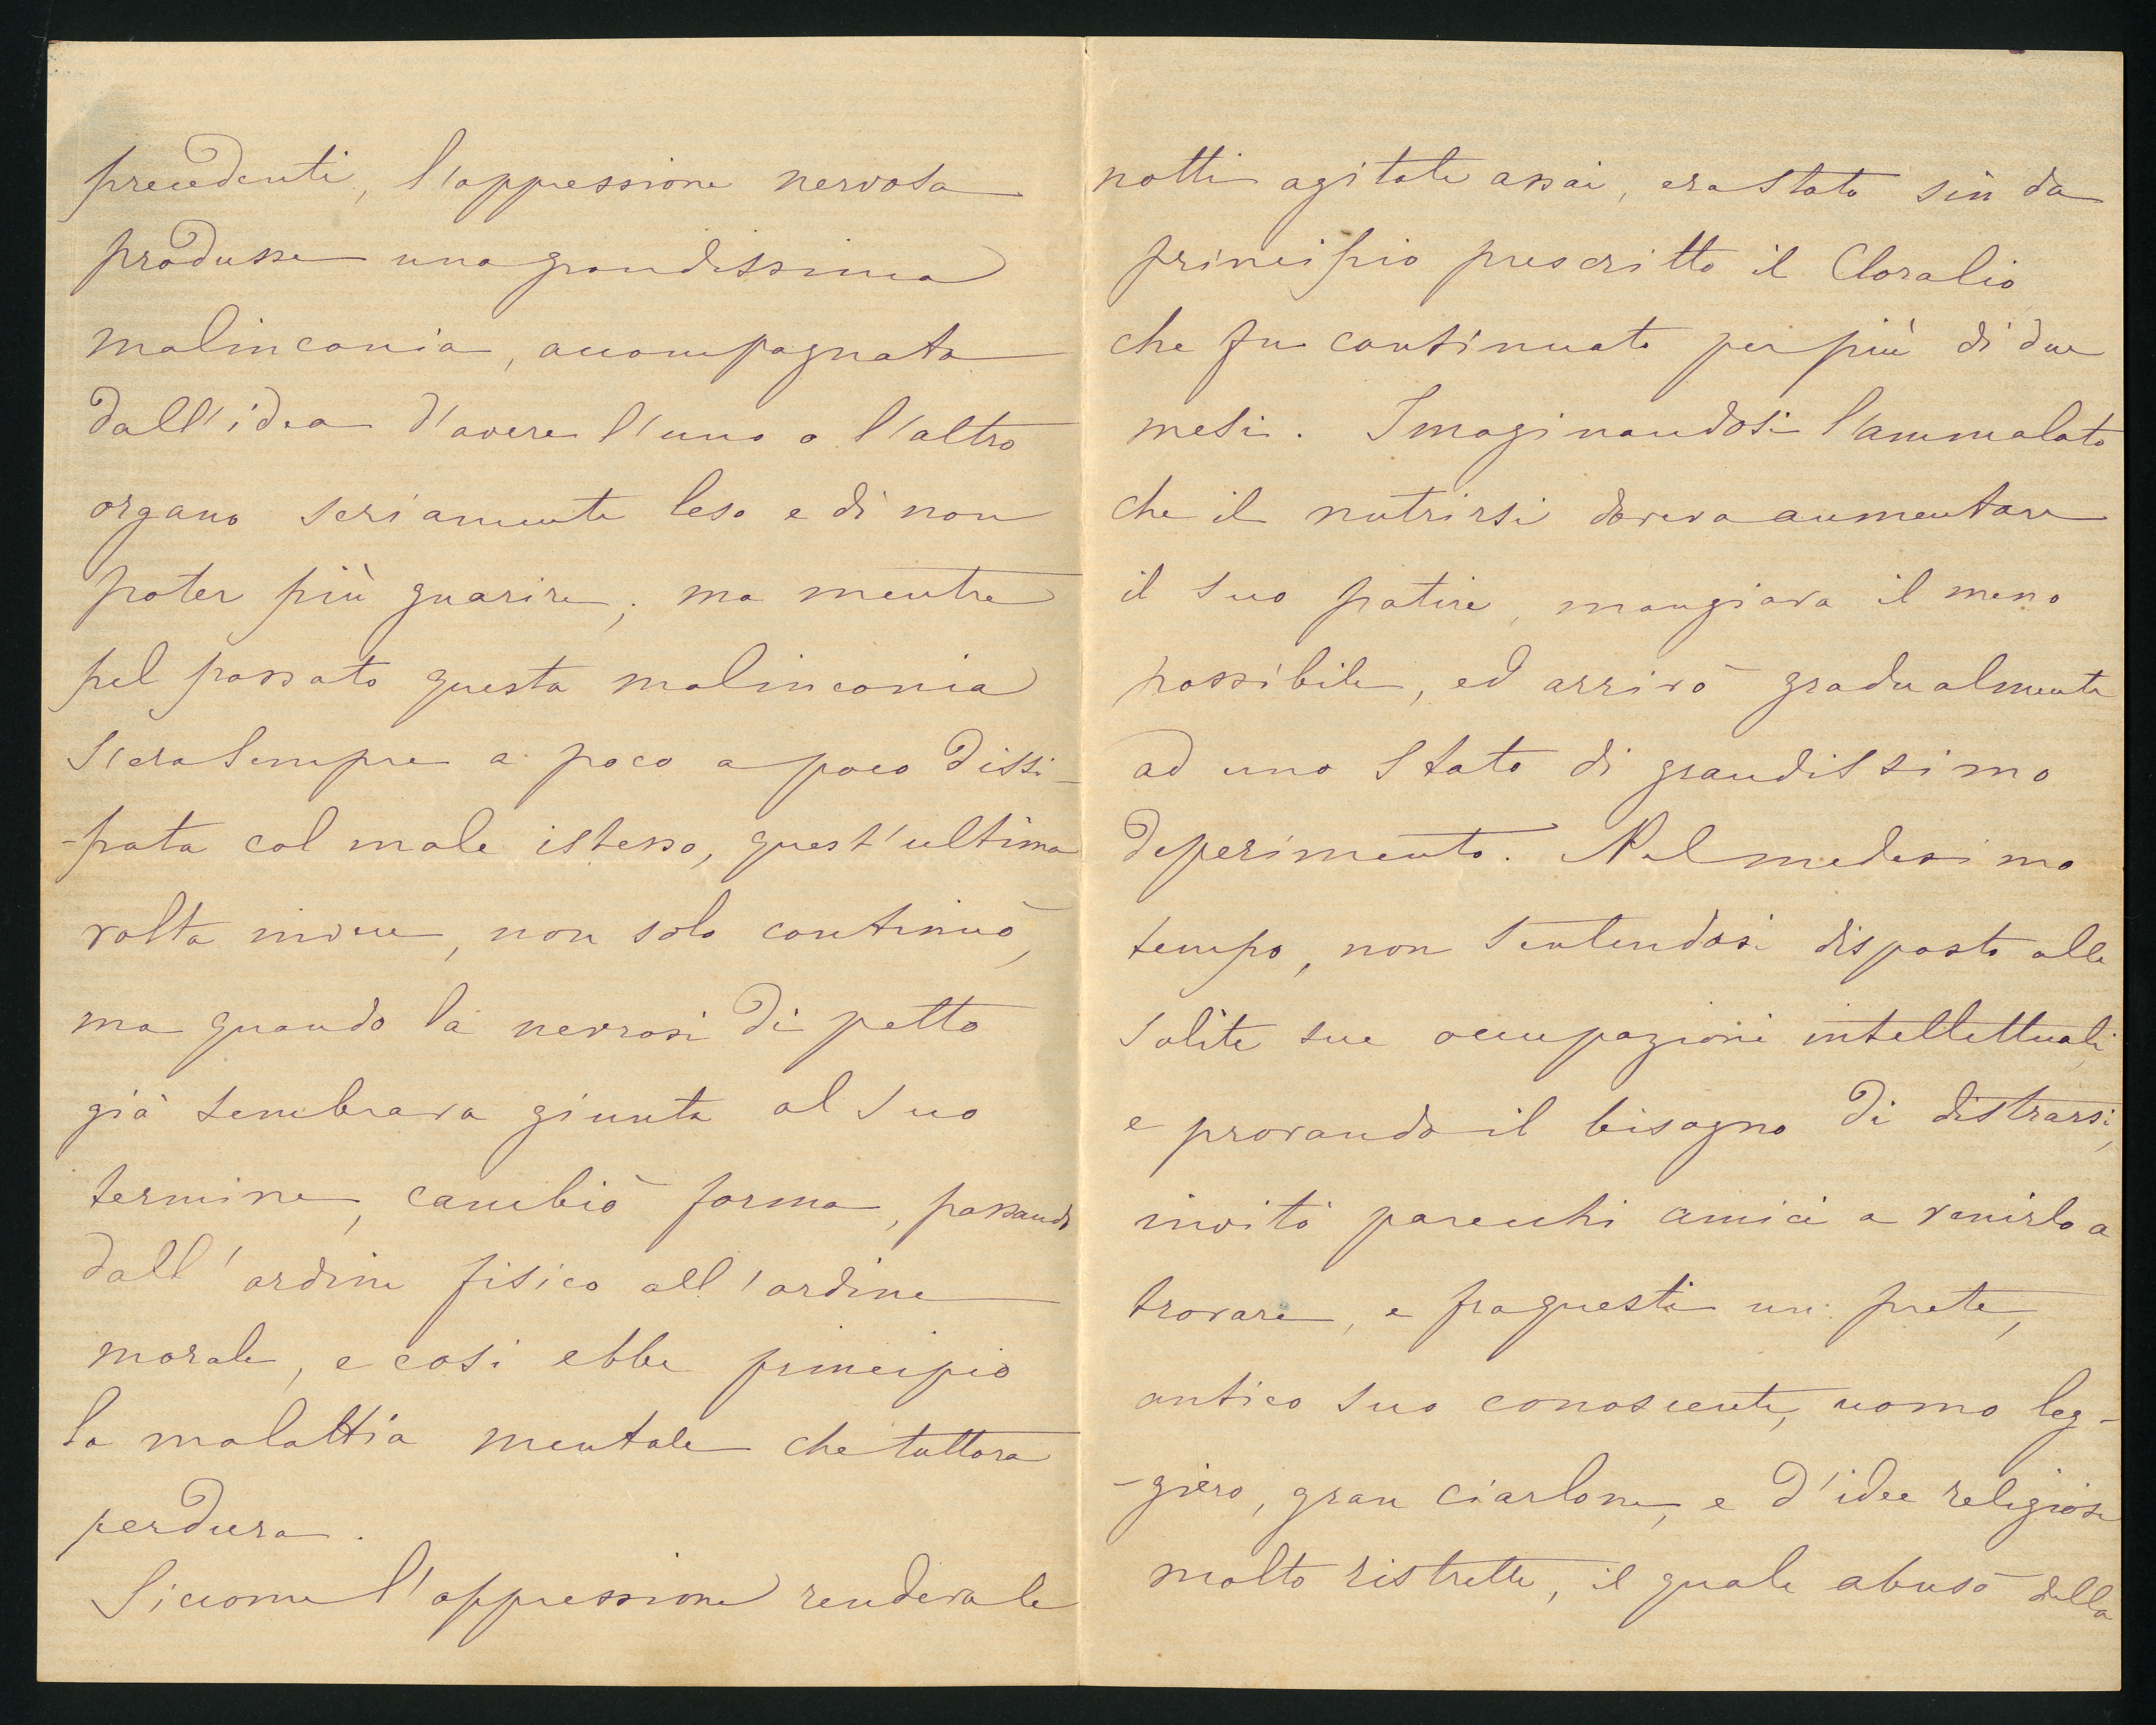 precedenti, l'oppressione nervosa
produsse una grandissima
malinconia, accompagnata
dall'idea d'avere l'uno o l'altro
organo seriamente leso e di non
poter più guarire; ma mentre
pel passato questa malinconia
s'era sempre a poco a poco dissi-
-pata col male istesso, quest'ultima
volta invece, non solo continuò,
ma quando la nevrosi di petto
già sembrava giunta al suo
termine, cambiò forma, passando
dall'ordine fisico all'ordine
morale, e così ebbe principio
la malattia mentale che tuttora
perdura.
Siccome l'oppressione rendeva le
notti agitate assai, era stato sin da
principio prescritto il Cloralio
che fu continuato per più di due
mesi. Imaginandosi l'ammalato
che il nutrirsi doveva aumentare
il suo patire, mangiava il meno
possibile, ed arrivò gradualmente
ad uno stato di grandissimo
deperimento. Nel medesimo
tempo, non sentendosi disposto alle
solite sue occupazioni intellettuali,
e provando il bisogno di distrarsi,
invitò parecchi amici a venirlo a
trovare, e fra questi un prete,
antico suo conoscente, uomo leg-
-giero, gran ciarlone, e d'idee religiose
molto ristrette, il quale abusò della